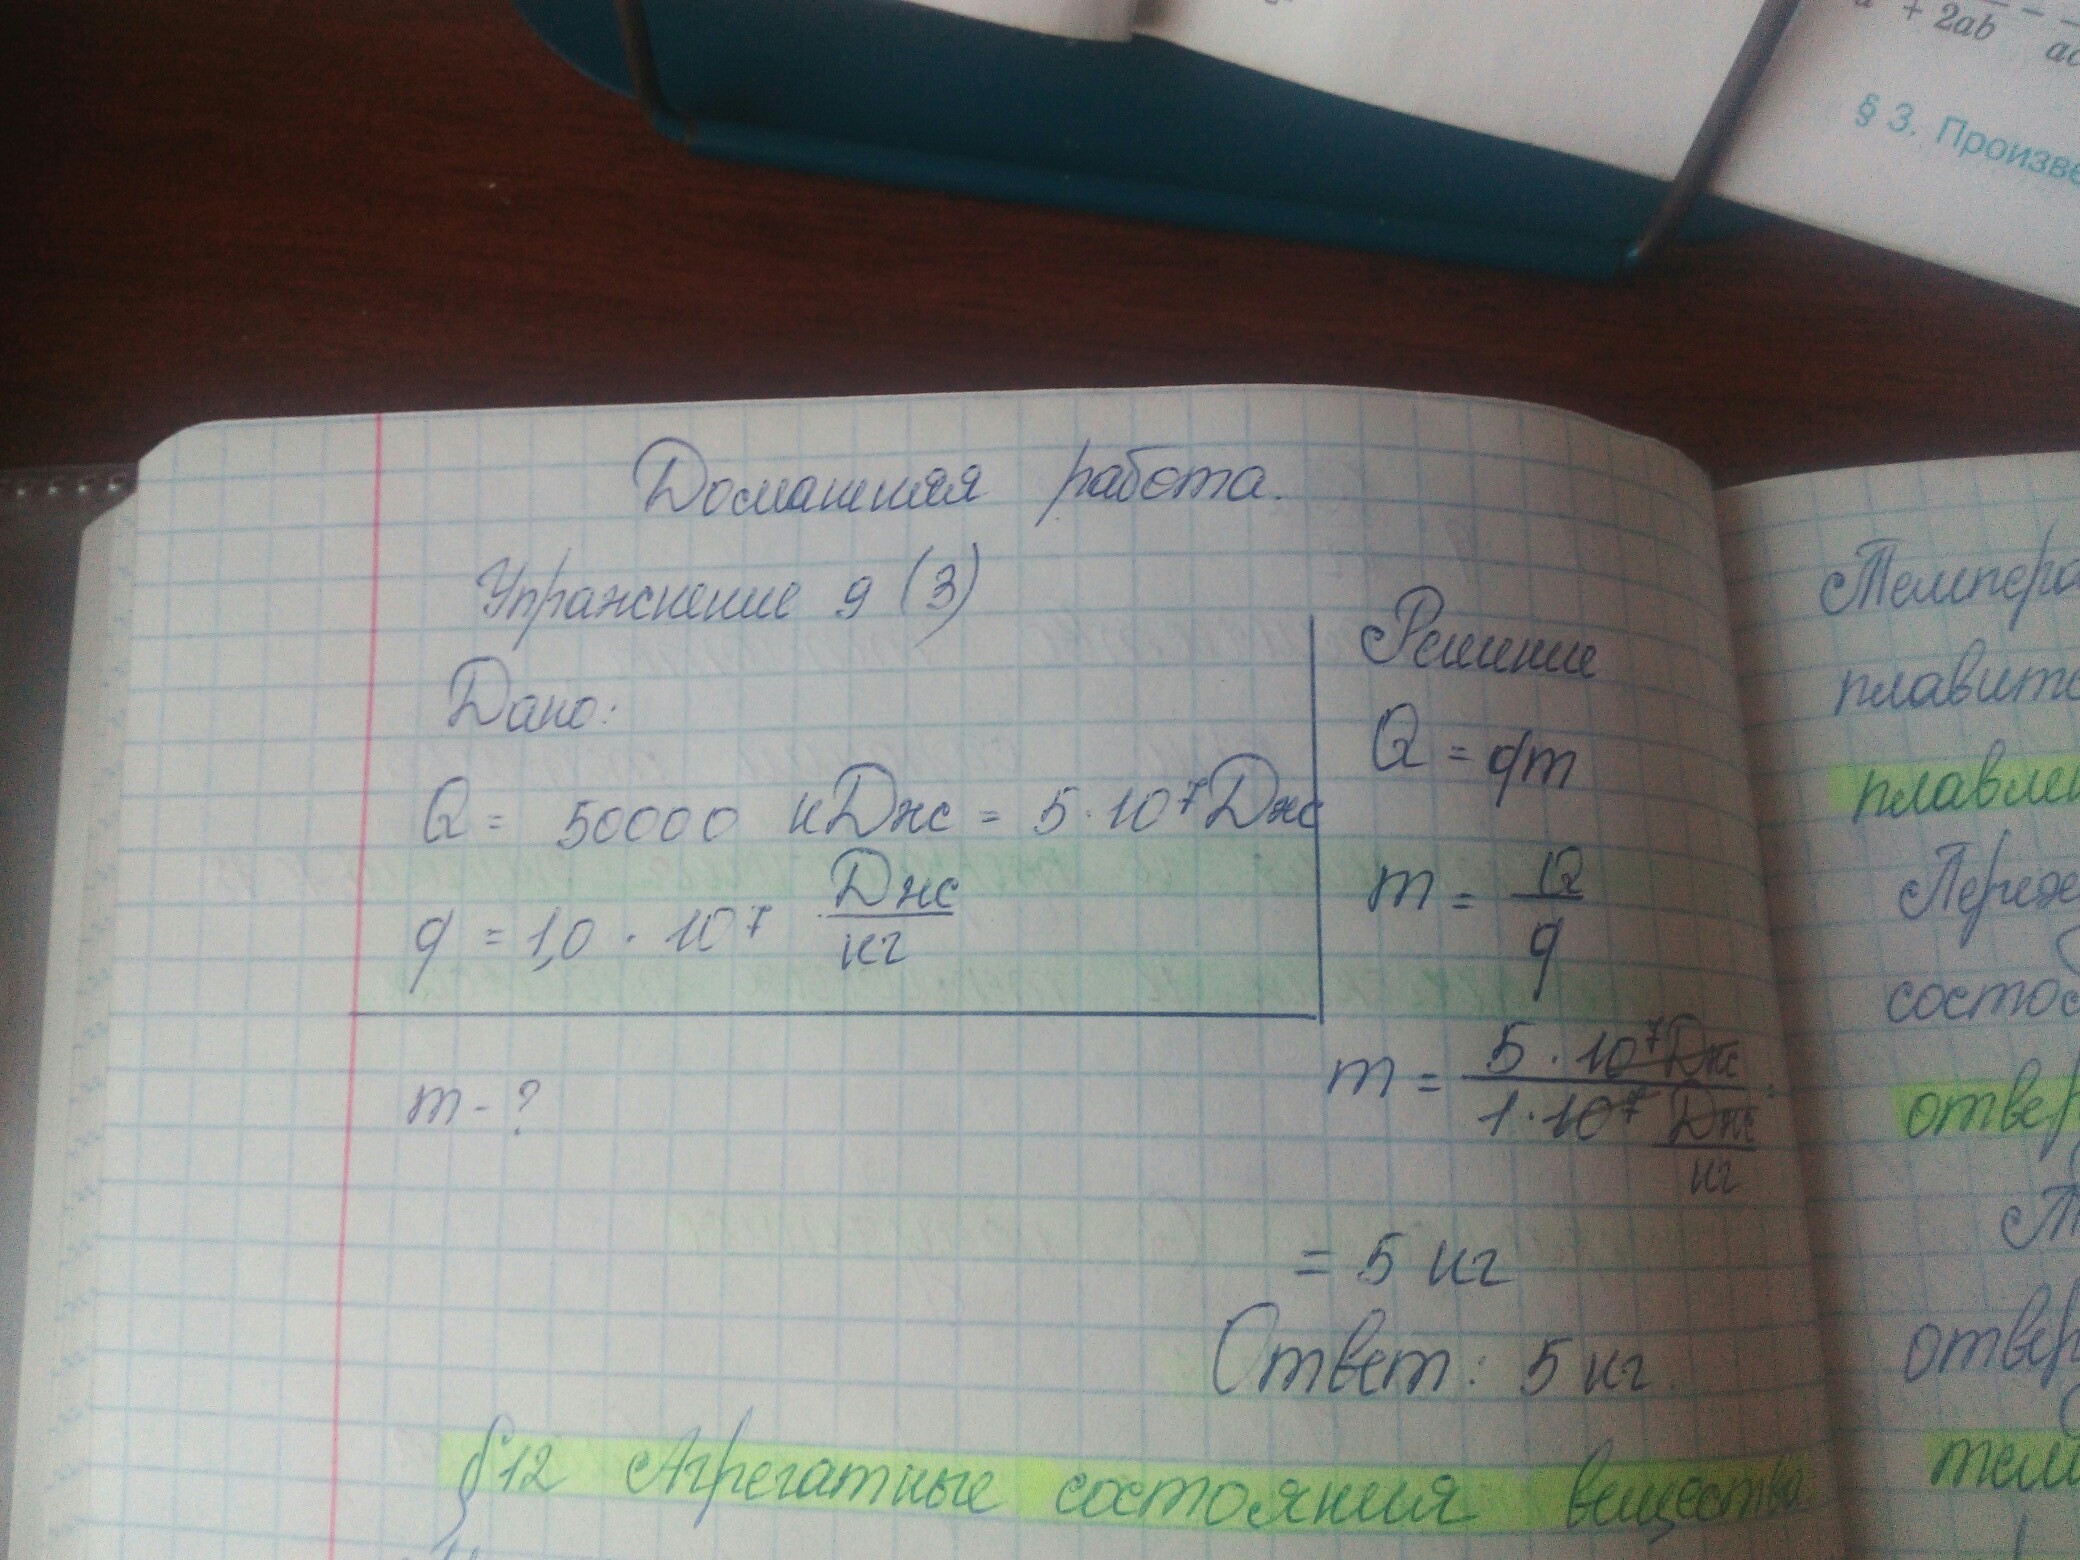 + 2ab
§ 3. Произве
Домашняя работа.
Упражнение 9 (3)
Дано:
Q = 50000 кДж = 5 · 10⁷ Дж
q = 1,0 · 10⁷ Дж/кг
m - ?
Решение
Q = qm
m = Q/q
m = 5 · 10⁷ Дж / 1 · 10⁷ Дж/кг =
= 5 кг
Ответ: 5 кг.
§ 12 Агрегатные состояния вещества
Темпера
плавитс
плавлен
Перех
состоя
отвер
отвер